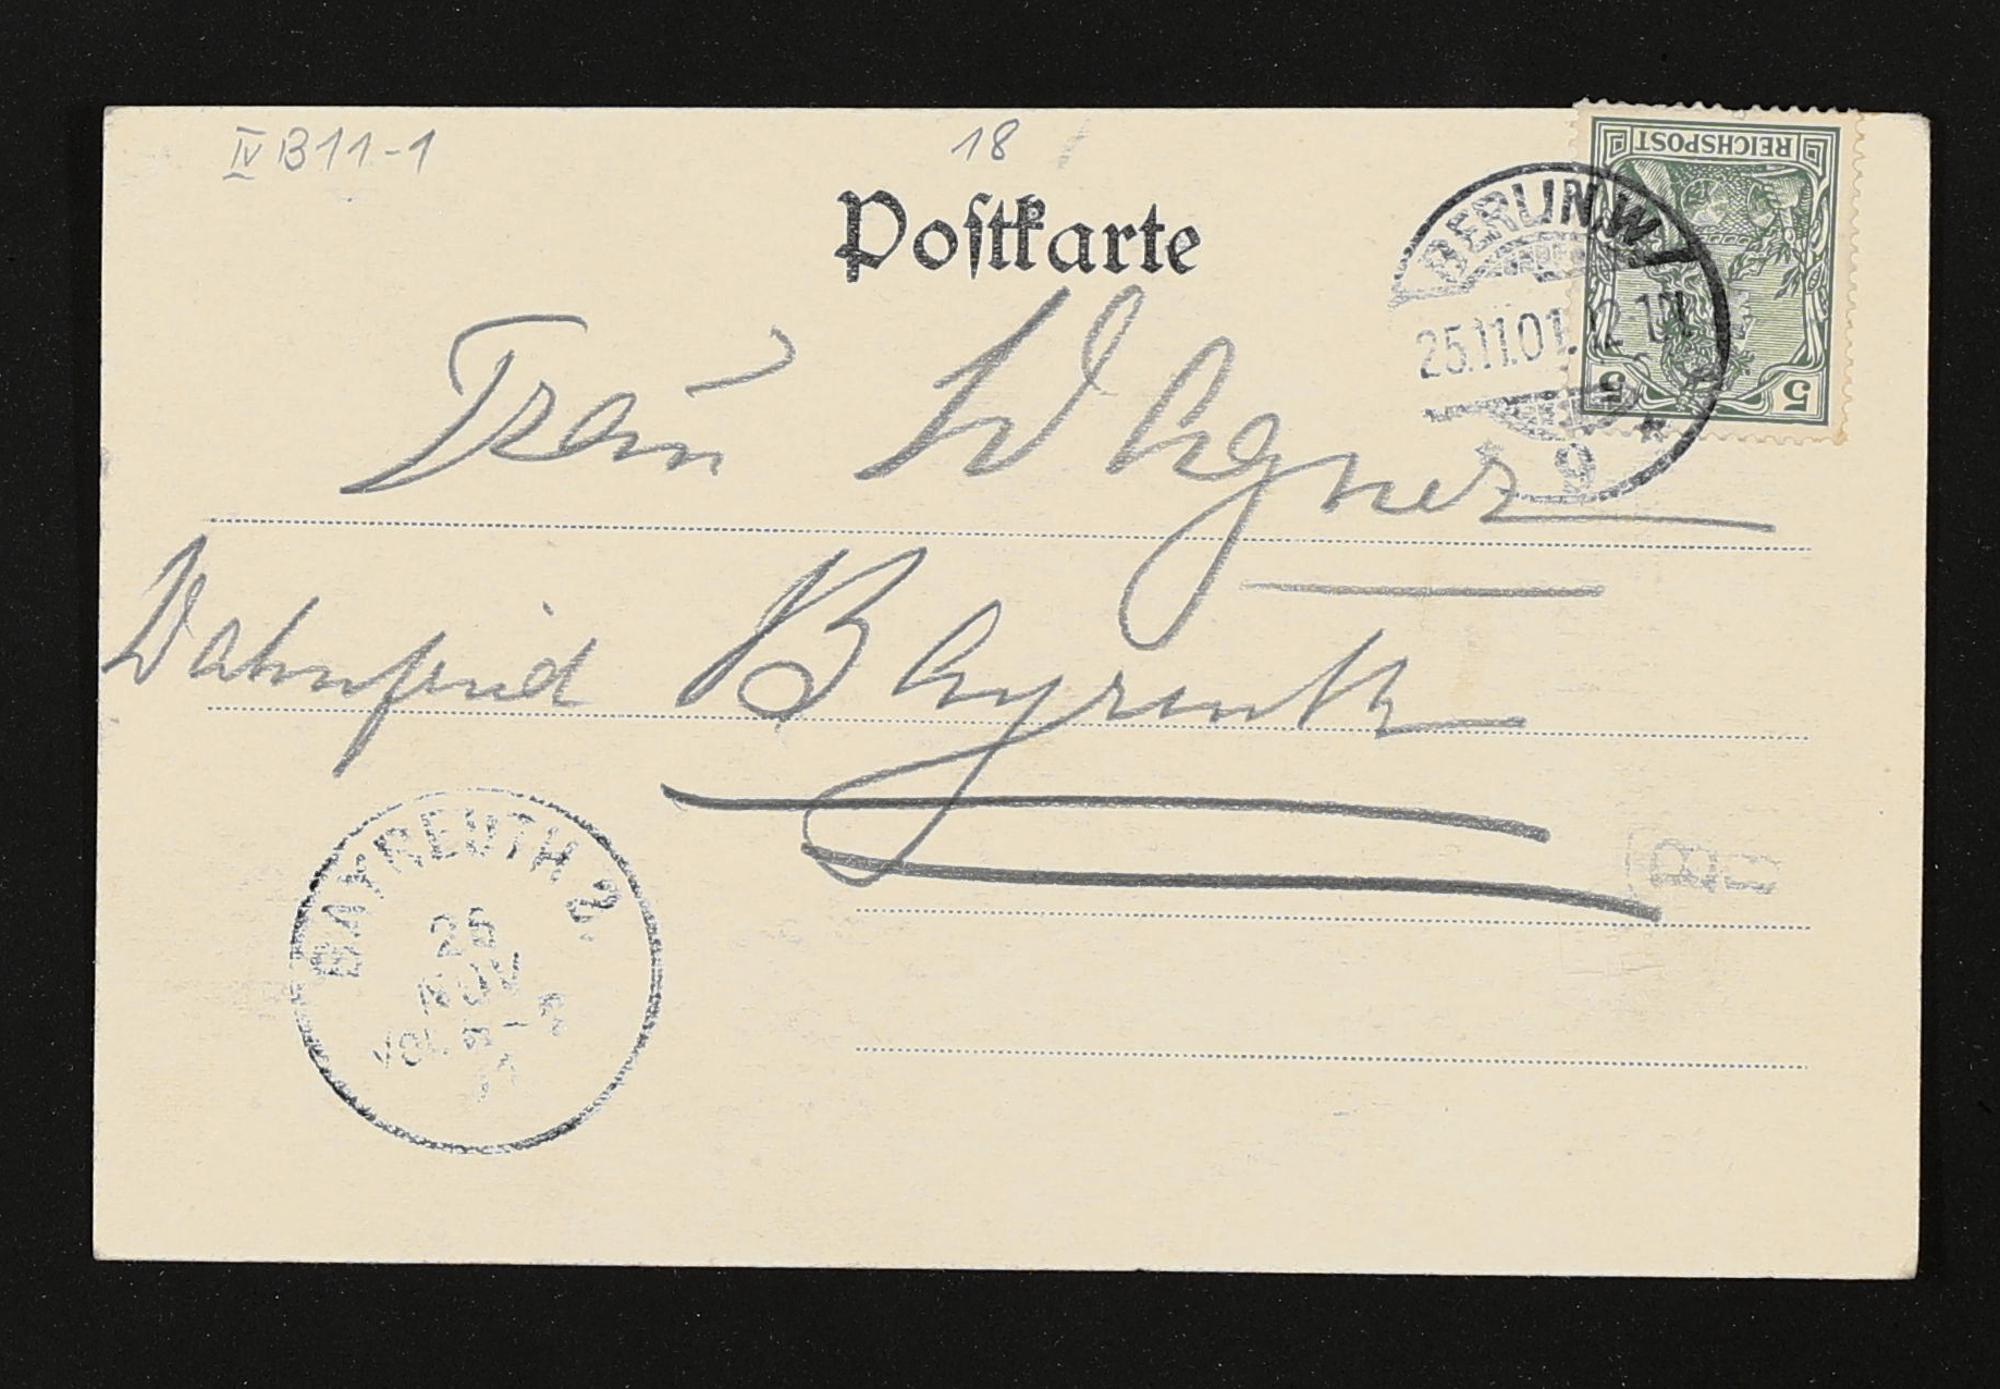 IV B 11-1
18
Postkarte
REICHSPOST
5 5
BERLIN.W
25.11.01.
9
Frau Wagner
Wahnfried Bayreuth
BAYREUTH 2.